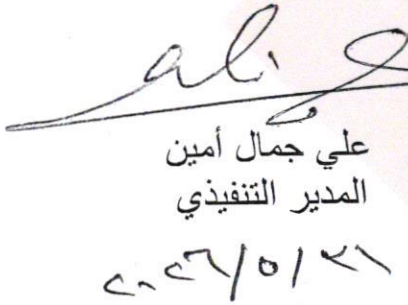 علي جمال أمين
المدير التنفيذي
٢٠٢٦/٥/٣١